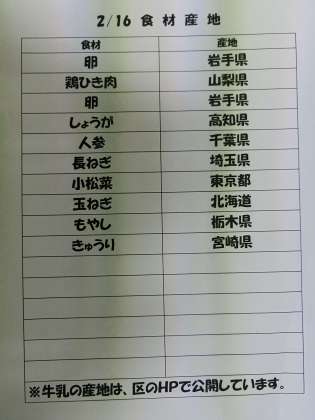 2/16 食材産地
食材 産地
卵 岩手県
鶏ひき肉 山梨県
卵 岩手県
しょうが 高知県
人参 千葉県
長ねぎ 埼玉県
小松菜 東京都
玉ねぎ 北海道
もやし 栃木県
きゅうり 宮崎県
※牛乳の産地は、区のHPで公開しています。